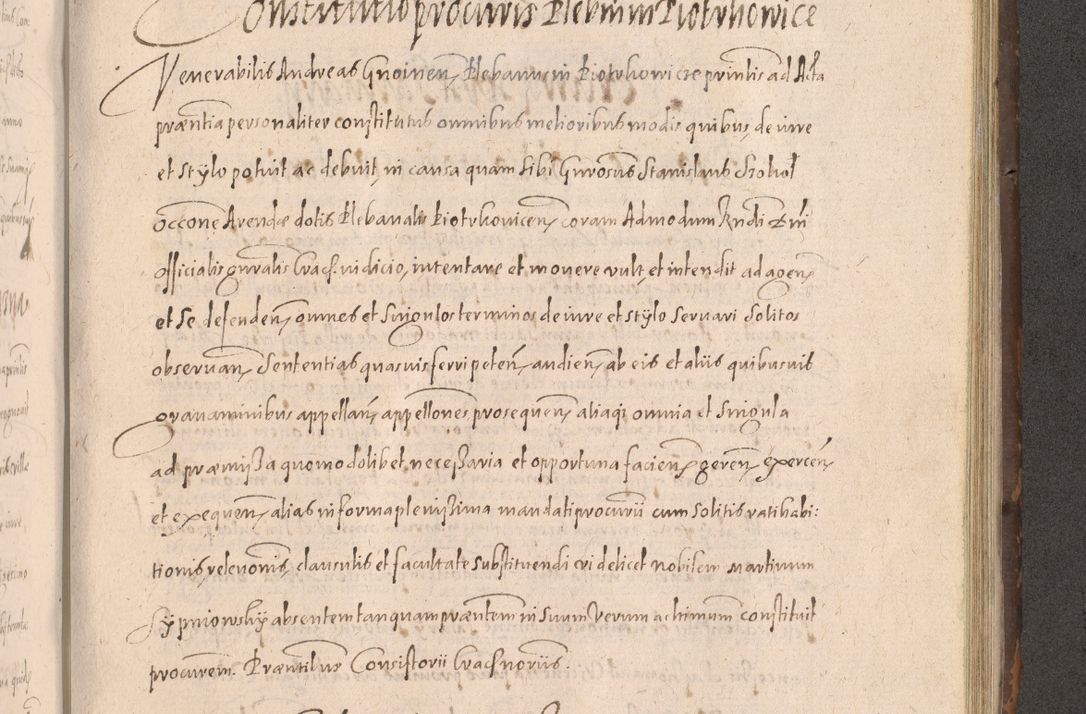 Constitutio procuris Plebanum Piotrkowice
Venerabilis Andreas Gnoinen, Plebanus in Piotrkowicze prīntis ad Acta
præntia personaliter constitutus omnibus melioribus modis quibus, de iure
et stÿlo potuit ac debuit, in causa quam sibi Gnrosus Stanislaus Sokol
occone Arendæ dotis Plebanalis Piotrkovicen, coram Admodum Rndi Dni
officialis gnralis Crac. iudicio, intentare et movere vult et intendit ad agen,
et se defenden, omnes et singulos terminos de iure et stÿlo servari solitos
observan, sententias quasvis ferri peten, audien, ab eis et aliis quibusvis
gravaminibus appellan, appellones prosequen, aliaq; omnia et singula
ad præmissa quomodolibet necessaria et opportuna facien, geren, exercen,
et exequen, alias in forma plenissima mandati procurii cum solitis ratihabi:
tionis, relevonis, clausulis et facultate substituendi videlicet nobilem Martinum
Sypniowskÿ absentem tanquam præntem in suum verum ac ltimum constituit
procurem. Præntibus Consistorii Crac. noriis.